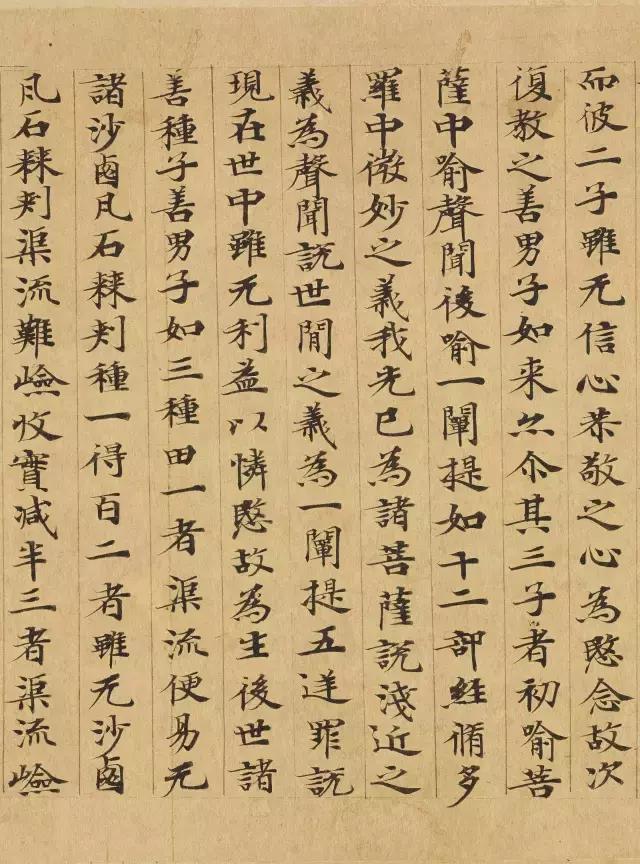 而彼二子雖无信心恭敬之心為愍念故次
復教之善男子如来亦尒其三子者初喻菩
薩中喻聲聞後喻一闡提如十二部經脩多
羅中微妙之義我先已為諸菩薩說淺近之
義為聲聞說世間之義為一闡提五逆罪說
現在世中雖无利益以憐愍故為生後世諸
善種子善男子如三種田一者渠流便易无
諸沙鹵凡石棘刾種一得百二者雖无沙鹵
凡石棘刾渠流難嶮收實减半三者渠流嶮